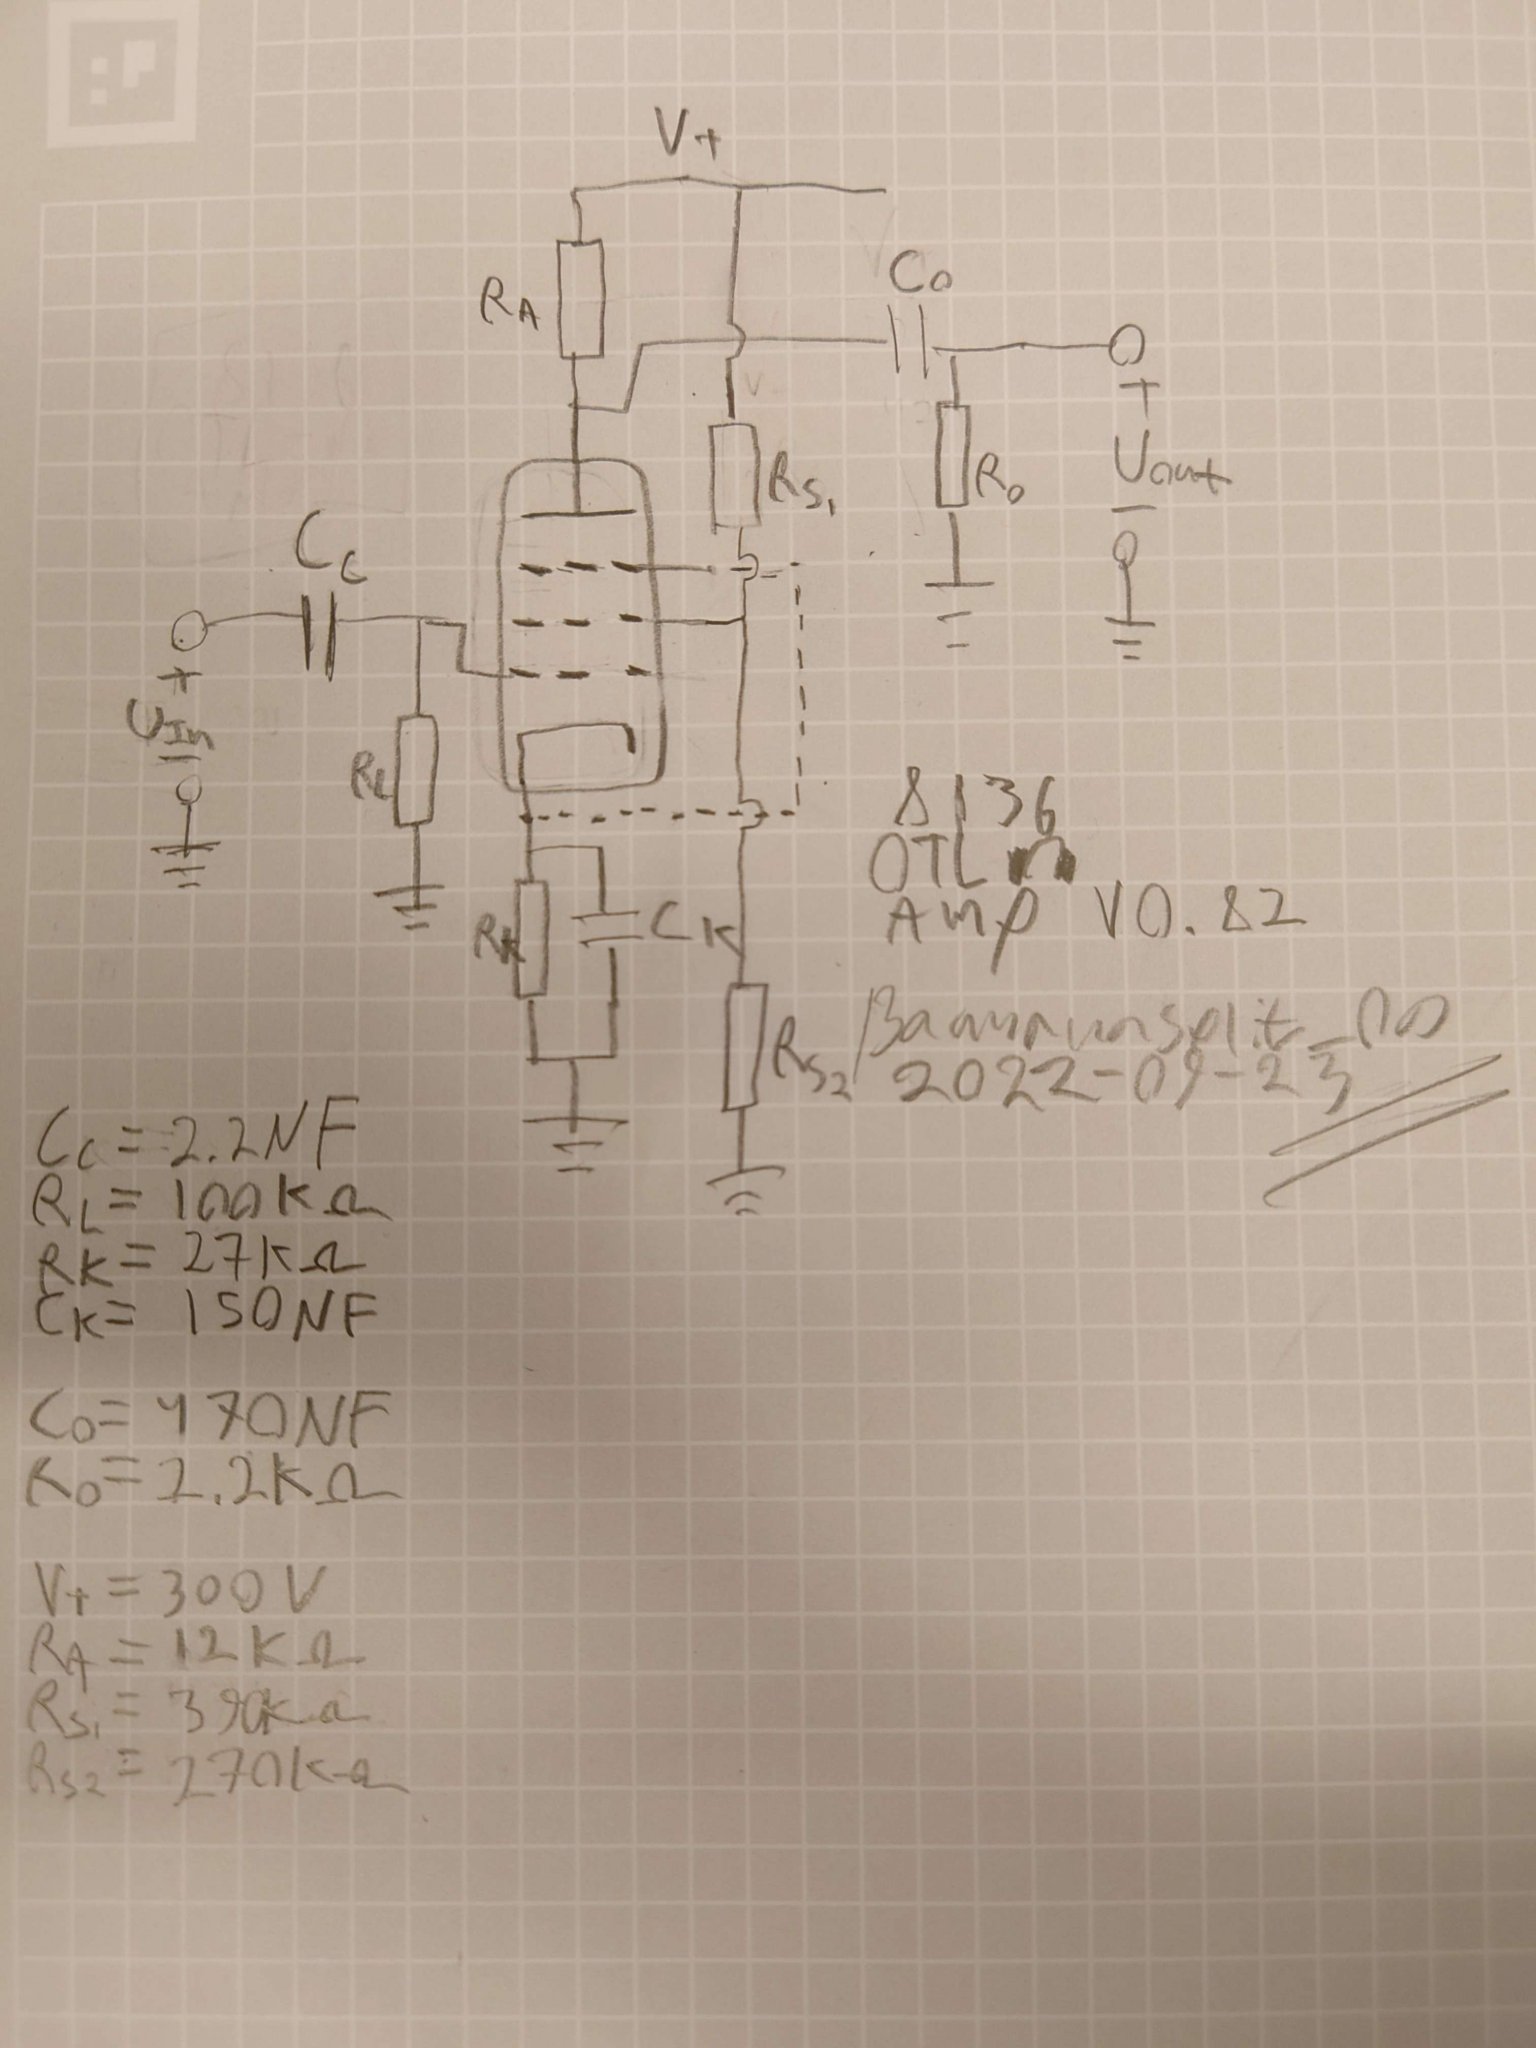 V+
RA
Co
RS1
Ro
+
Uout
-
CC
+
UIn
-
RL
RK
CK
RS2
8136
OTL
Amp V0.82
2022-09-23
CC = 2.2NF
RL = 100KΩ
RK = 27KΩ
CK = 150NF
Co = 470NF
Ro = 2.2KΩ
V+ = 300V
RA = 12KΩ
RS1 = 390KΩ
RS2 = 270KΩ